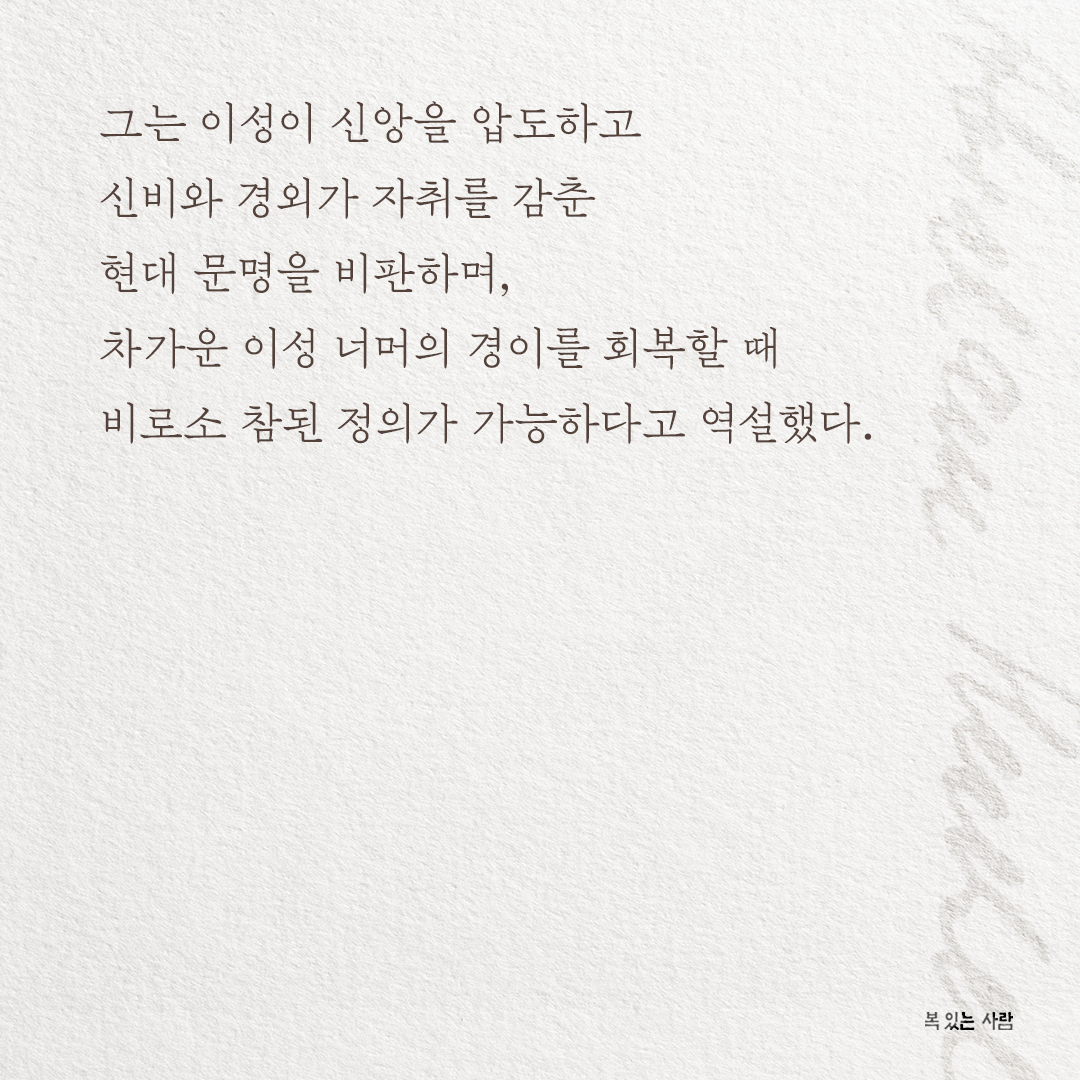 그는 이성이 신앙을 압도하고
신비와 경외가 자취를 감춘
현대 문명을 비판하며,
차가운 이성 너머의 경이를 회복할 때
비로소 참된 정의가 가능하다고 역설했다.
복 있는 사람